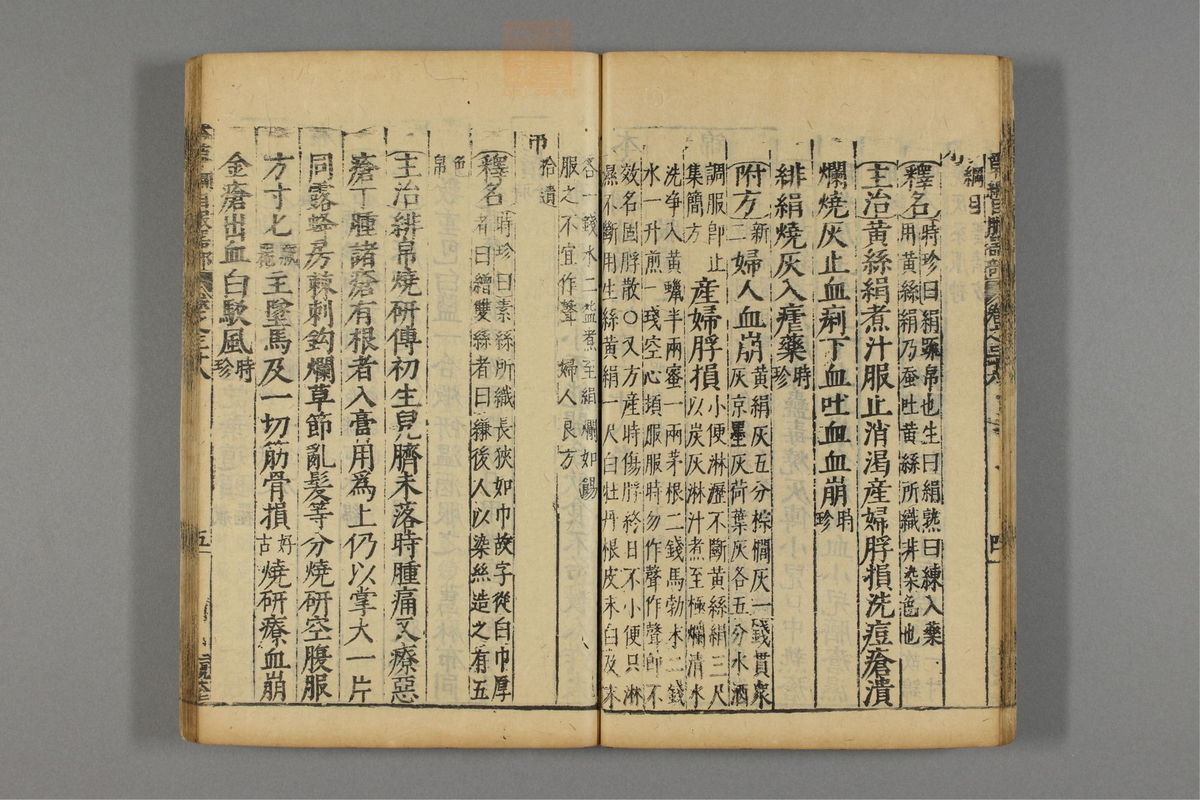 綱目
釋名時珍曰絹疎帛也生曰絹熟曰練入藥
用黃絲絹乃蚕吐黃絲所織非染色也
主治黃絲絹煮汁服止消渴產婦脬損洗痘瘡潰
爛燒灰止血痢下血吐血血崩時珍
緋絹燒灰入瘧藥時珍
附方新二婦人血崩黃絹灰五分棕櫚灰一錢貫衆
灰京墨灰荷葉灰各五分水酒
調服卽止
集簡方產婦脬損小便淋瀝不斷黃絲絹三尺
以炭灰淋汁煮至極爛清水
洗净入黃蠟半兩蜜一兩茅根二錢馬勃末二錢
水一升煎一琖空心頓服服時勿作聲作聲卽不
效名固脬散〇又方產時傷脬終日不小便只淋
濕不斷用生絲黃絹一尺白牡丹根皮末白及末
各一錢水二盌煮至絹爛如餳
服之不宜作聲婦人良方
帛拾遺
釋名時珍曰素絲所織長狹如巾故字從白巾厚
者曰繒雙絲者曰縑後人以染絲造之有五
色帛
主治緋帛燒研傅初生兒臍未落時腫痛又療惡
瘡丁腫諸瘡有根者入膏用爲上仍以掌大一片
同露蜂房棘刺鈎爛草節亂髮等分燒研空腹服
方寸匕藏器主墜馬及一切筋骨損好古燒研療血崩
金瘡出血白駁風時珍
五